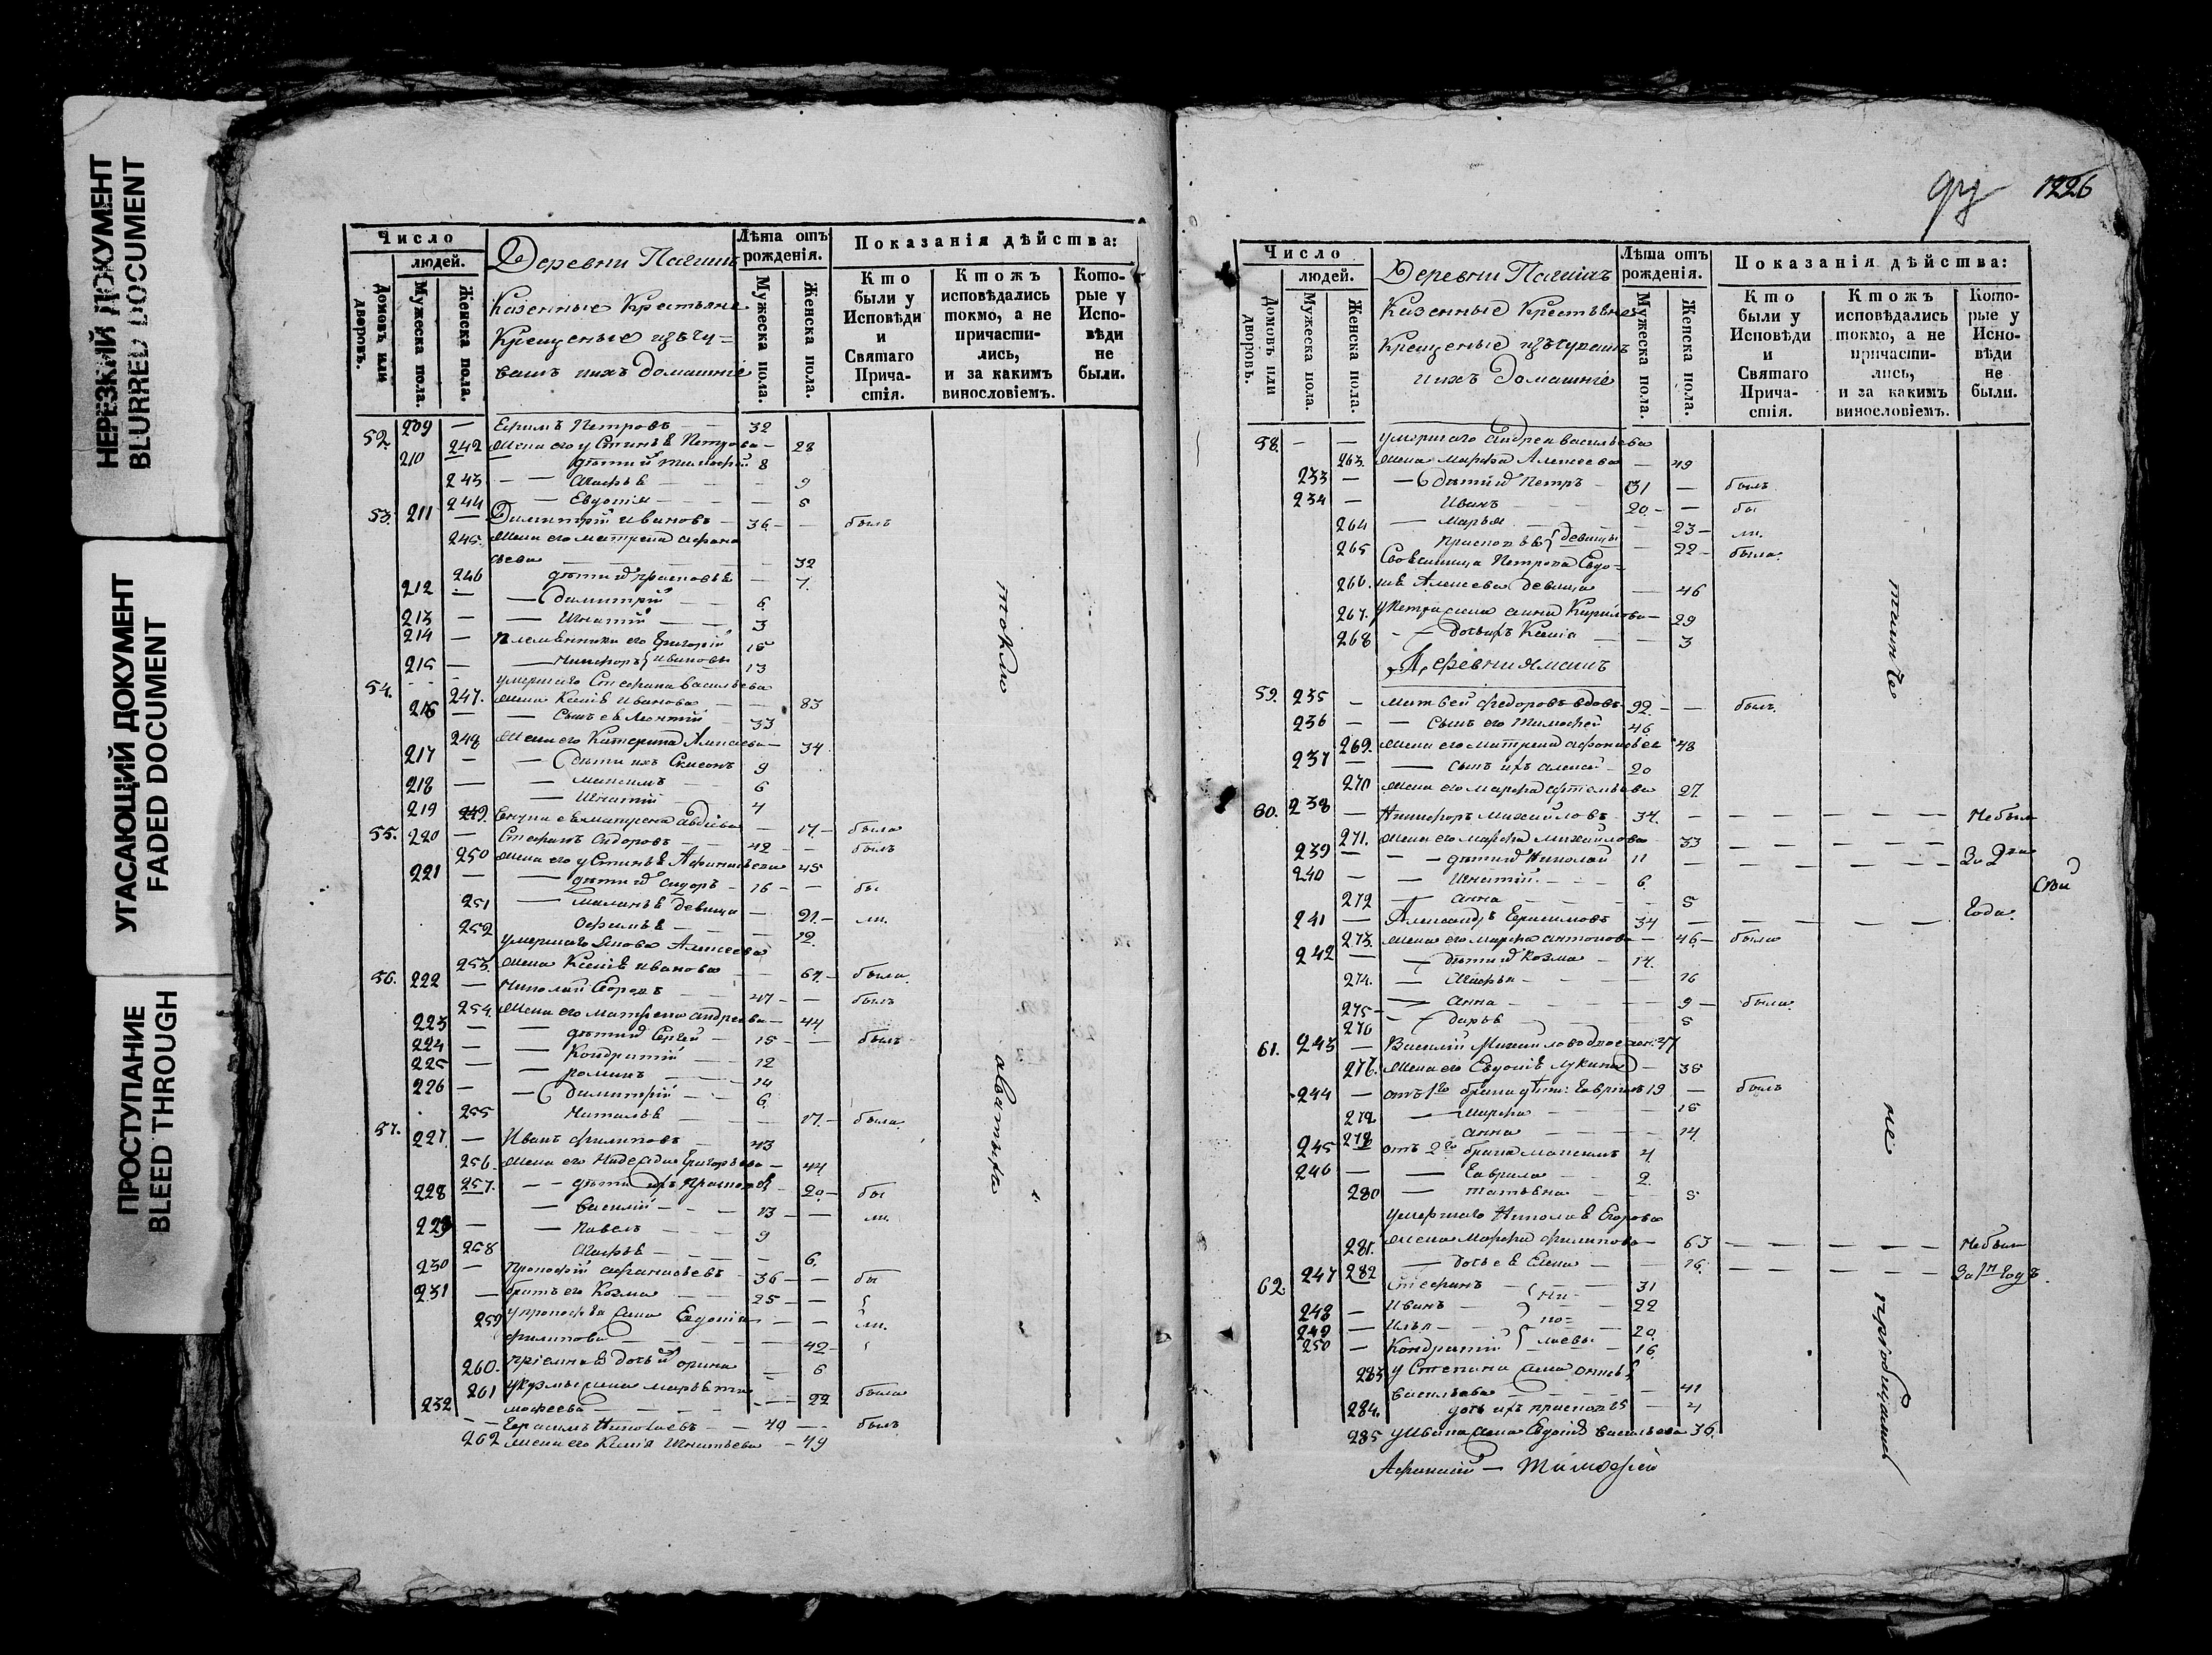 НЕРЕЗКИЙ ДОКУМЕНТ
BLURRED DOCUMENT
УГАСАЮЩИЙ ДОКУМЕНТ
FADED DOCUMENT
ПРОСТУПАНИЕ
BLEED THROUGH
Число
людей.
Домовъ или дворовъ.
Мужеска пола.
Женска пола.
Деревни
Казенные Крестьяне
Крещеные изъ Чу=
вашъ ихъ домашніе
Лѣта отъ рожденія.
Мужеска пола.
Женска пола.
Показанія дѣйства:
Кто были у Исповѣди и Святаго Причастія.
Ктожъ исповѣдались токмо, а не причастились, и за какимъ винословіемъ.
Которые у Исповѣди не были.
52. 209 — Ефимъ Петровъ — 32
242 Жена его Устинья Петрова — 28
210 — дѣти Тимофей 8
243 — Агафья — 9
244 — Евдотія — 5
53. 211 — Димитрій Ивановъ — 36 — былъ
245. Жена его Матрена Афона
сьева — 32
246 дѣти Прасковья — 7.
212 — Димитрій — 6
213 — Игнатій — 3
214 — Племянники его Григорій 15
215 — Никифоръ Ивановы 13
54. умершаго Стефана Васильева
247. Жена Ксенія Иванова — 83
216 — Сынъ ея Леонтій — 33
248 Жена его Катерина Алексеева — 34
217 — дѣти ихъ 9
218 — Максимъ 6
219 — Игнатій 4
249. Матрена Авдѣева — 17 — была
55. 220 — Стефанъ Сидоровъ — 42 — былъ
250 Жена его Устинья Афанасьева 45
221 — дѣти Сидоръ — 16 — бы
251 — Маланья девица — 21 — ли.
252 Офимья — 12.
умершаго Якова Алексеева
253. Жена Ксенія Иванова — 67 — была
56. 222 — Николай Егоровъ — 47 — былъ
254 Жена его Матрена Андреева — 44
223 — дѣти Сергей — 15 — былъ
224 — Кондратій — 12
225 — Романъ — 14
226 — Димитрій — 6
255 Наталья — 17 — была
57. 227 — Иванъ Филиповъ — 43
256. Жена его Надежда Григорьева — 44
257. — дѣти ихъ Прасковья — 20 — бы
228 — Василій — 13 — ли.
229 — Павелъ — 9
258 Агафья — 6.
230 — Прокофій Афанасьевъ — 36 — бы
231 — братъ его Козма — 25 —
259 у Прокофья жена Евдокія — ли.
Филипова — 42
260. дочь Орина — 6
261 у Кузмы жена Марья Ти
мофеева — 22 была
232 — Герасимъ Николаевъ — 40 — былъ
262 Жена его Ксенія Игнатьева — 49
токмо
1226
Число
людей.
Домовъ или дворовъ.
Мужеска пола.
Женска пола.
Деревни
Казенные Крестьяне
Крещеные изъ Чувашъ
ихъ Домашніе
Лѣта отъ рожденія.
Мужеска пола.
Женска пола.
Показанія дѣйства:
Кто были у Исповѣди и Святаго Причастія.
Ктожъ исповѣдались токмо, а не причастились, и за какимъ винословіемъ.
Которые у Исповѣди не были.
58. — — умершаго Андрея Васильева
263. Жена Марфа Алексеева — 49
233 — дѣти Петръ — 31 — былъ
234 — Иванъ 20 — бы
264 — Марья — 23 — ли.
265 Прасковья девицы — 22 — была
Петрова Евдо=
266. кія Алексеева девица — 46
267. у Петра жена Анна Кирилова — 29
268 — дочь ихъ Ксенія — 3
Деревни
59. 235 — Матвей Федоровъ вдовъ — 92 — былъ
236 — Сынъ его Тимофей 46
269. Жена его Матрена Афонасьева 48
237 — сынъ ихъ Алексей 20
270 Жена его Марфа Артемьева 27.
60. 238 — Никифоръ Михайловъ — 34. — Небыли
271. Жена его Марфа Михайлова — 33
239 — дѣти Николай 11 — За 2
240 — Игнатій — 6
272 — Анна — 5 Года
241 — Александръ Герасимовъ 34
273. Жена его Марфа Антонова — 46 — была
242 — дѣти Козма — 14.
274. — Агафья — 16
275 — Анна — 9 — была
276 — Дарья — 5
61. 243 — Василій Михайловъ 37
277. Жена его Евдокія Лукина — 35
244 — отъ 1го брака дѣти: Гаврилъ 19 — былъ
278 — Марфа — 15
279 Анна — 14.
245 отъ 2го брака Максимъ 4
246 — Гаврила — 2
280 — Татьяна — 5
умершаго Николая Егорова
281. Жена Марфа Филипова — 63 — Небыли
282 — дочь ея Елена — 16. — За 1й Годъ.
62. 247 Стефанъ — Ни- 31
248 — Иванъ — 22
249 — Илья — ко= 20
250 — Кондратій — лаевы — 16.
283 у Степана жена
Васильева — 41
284. дочь ихъ Прасковья — 4
285 у Ивана жена Евдокія Васильева 36.
не
пріобщались
Афанасій — Тимофей